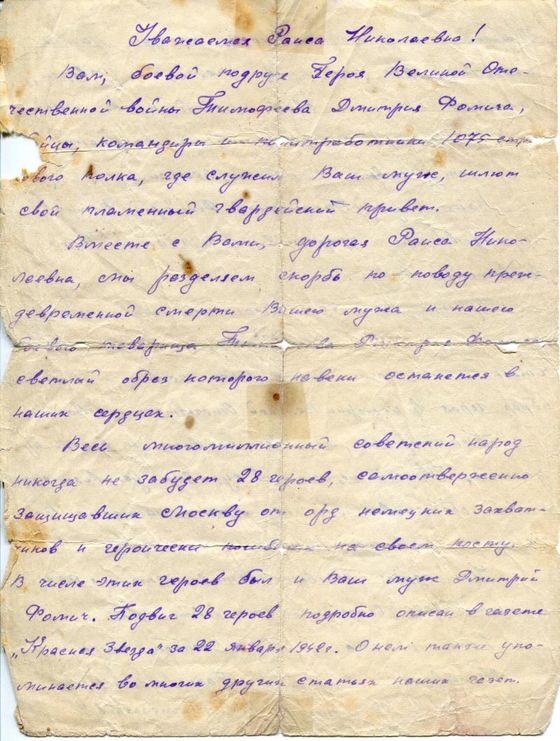 Уважаемая Раиса Николаевна!
Вам, боевой подруге Героя Великой Оте-
чественной войны Тимофеева Дмитрия Фомича,
бойцы, командиры и политработники 1075 стр
ового полка, где служил Ваш муж, шлют
свой пламенный гвардейский привет.
Вместе с Вами, дорогая Раиса Нико-
лаевна, мы разделяем скорбь по поводу преж-
девременной смерти Вашего мужа и нашего
боевого товарища
светлый образ которого навеки останется в
наших сердцах.
Весь многомиллионный советский народ
никогда не забудет 28 героев, самоотверженно
защищавших Москву от орд немецких захват-
чиков и героически погибших на своем посту.
В числе этих героев был и Ваш муж Дмитрий
Фомич. Подвиг 28 героев подробно описан в газете
„Красная Звезда" за 22 января 1942г. О нем также упо-
минается во многих других статьях наших газет.